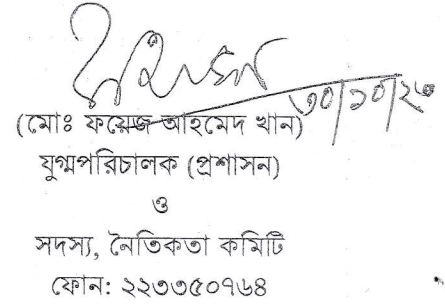 ৩০/১০/২৩
(মোঃ ফয়েজ আহমেদ খান)
যুগ্মপরিচালক (প্রশাসন)
ও
সদস্য, নৈতিকতা কমিটি
ফোন: ২২৩৩৫০৭৬৪